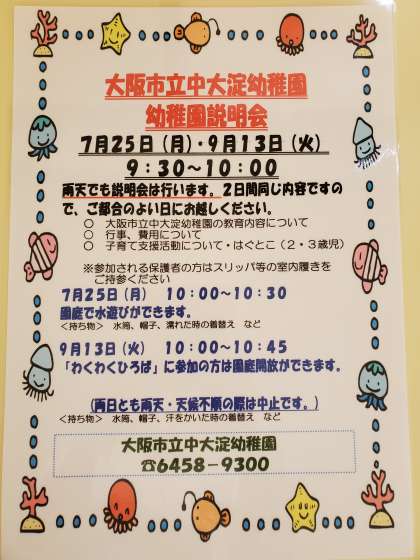 大阪市立中大淀幼稚園
幼稚園説明会
7月25日（月）・9月13日（火）
9：30～10：00
雨天でも説明会は行います。2日間同じ内容ですの
で、ご都合のよい日にお越しください。
○ 大阪市立中大淀幼稚園の教育内容について
○ 行事、費用について
○ 子育て支援活動について・はぐとこ（2・3歳児）
※参加される保護者の方はスリッパ等の室内履きを
ご持参ください
7月25日（月） 10：00～10：30
園庭で水遊びができます。
＜持ち物＞ 水筒、帽子、濡れた時の着替え など
9月13日（火） 10：00～10：45
「わくわくひろば」に参加の方は園庭開放ができます。
（両日とも雨天・天候不順の際は中止です。）
＜持ち物＞ 水筒、帽子、汗をかいた時の着替え など
大阪市立中大淀幼稚園
☎6458－9300